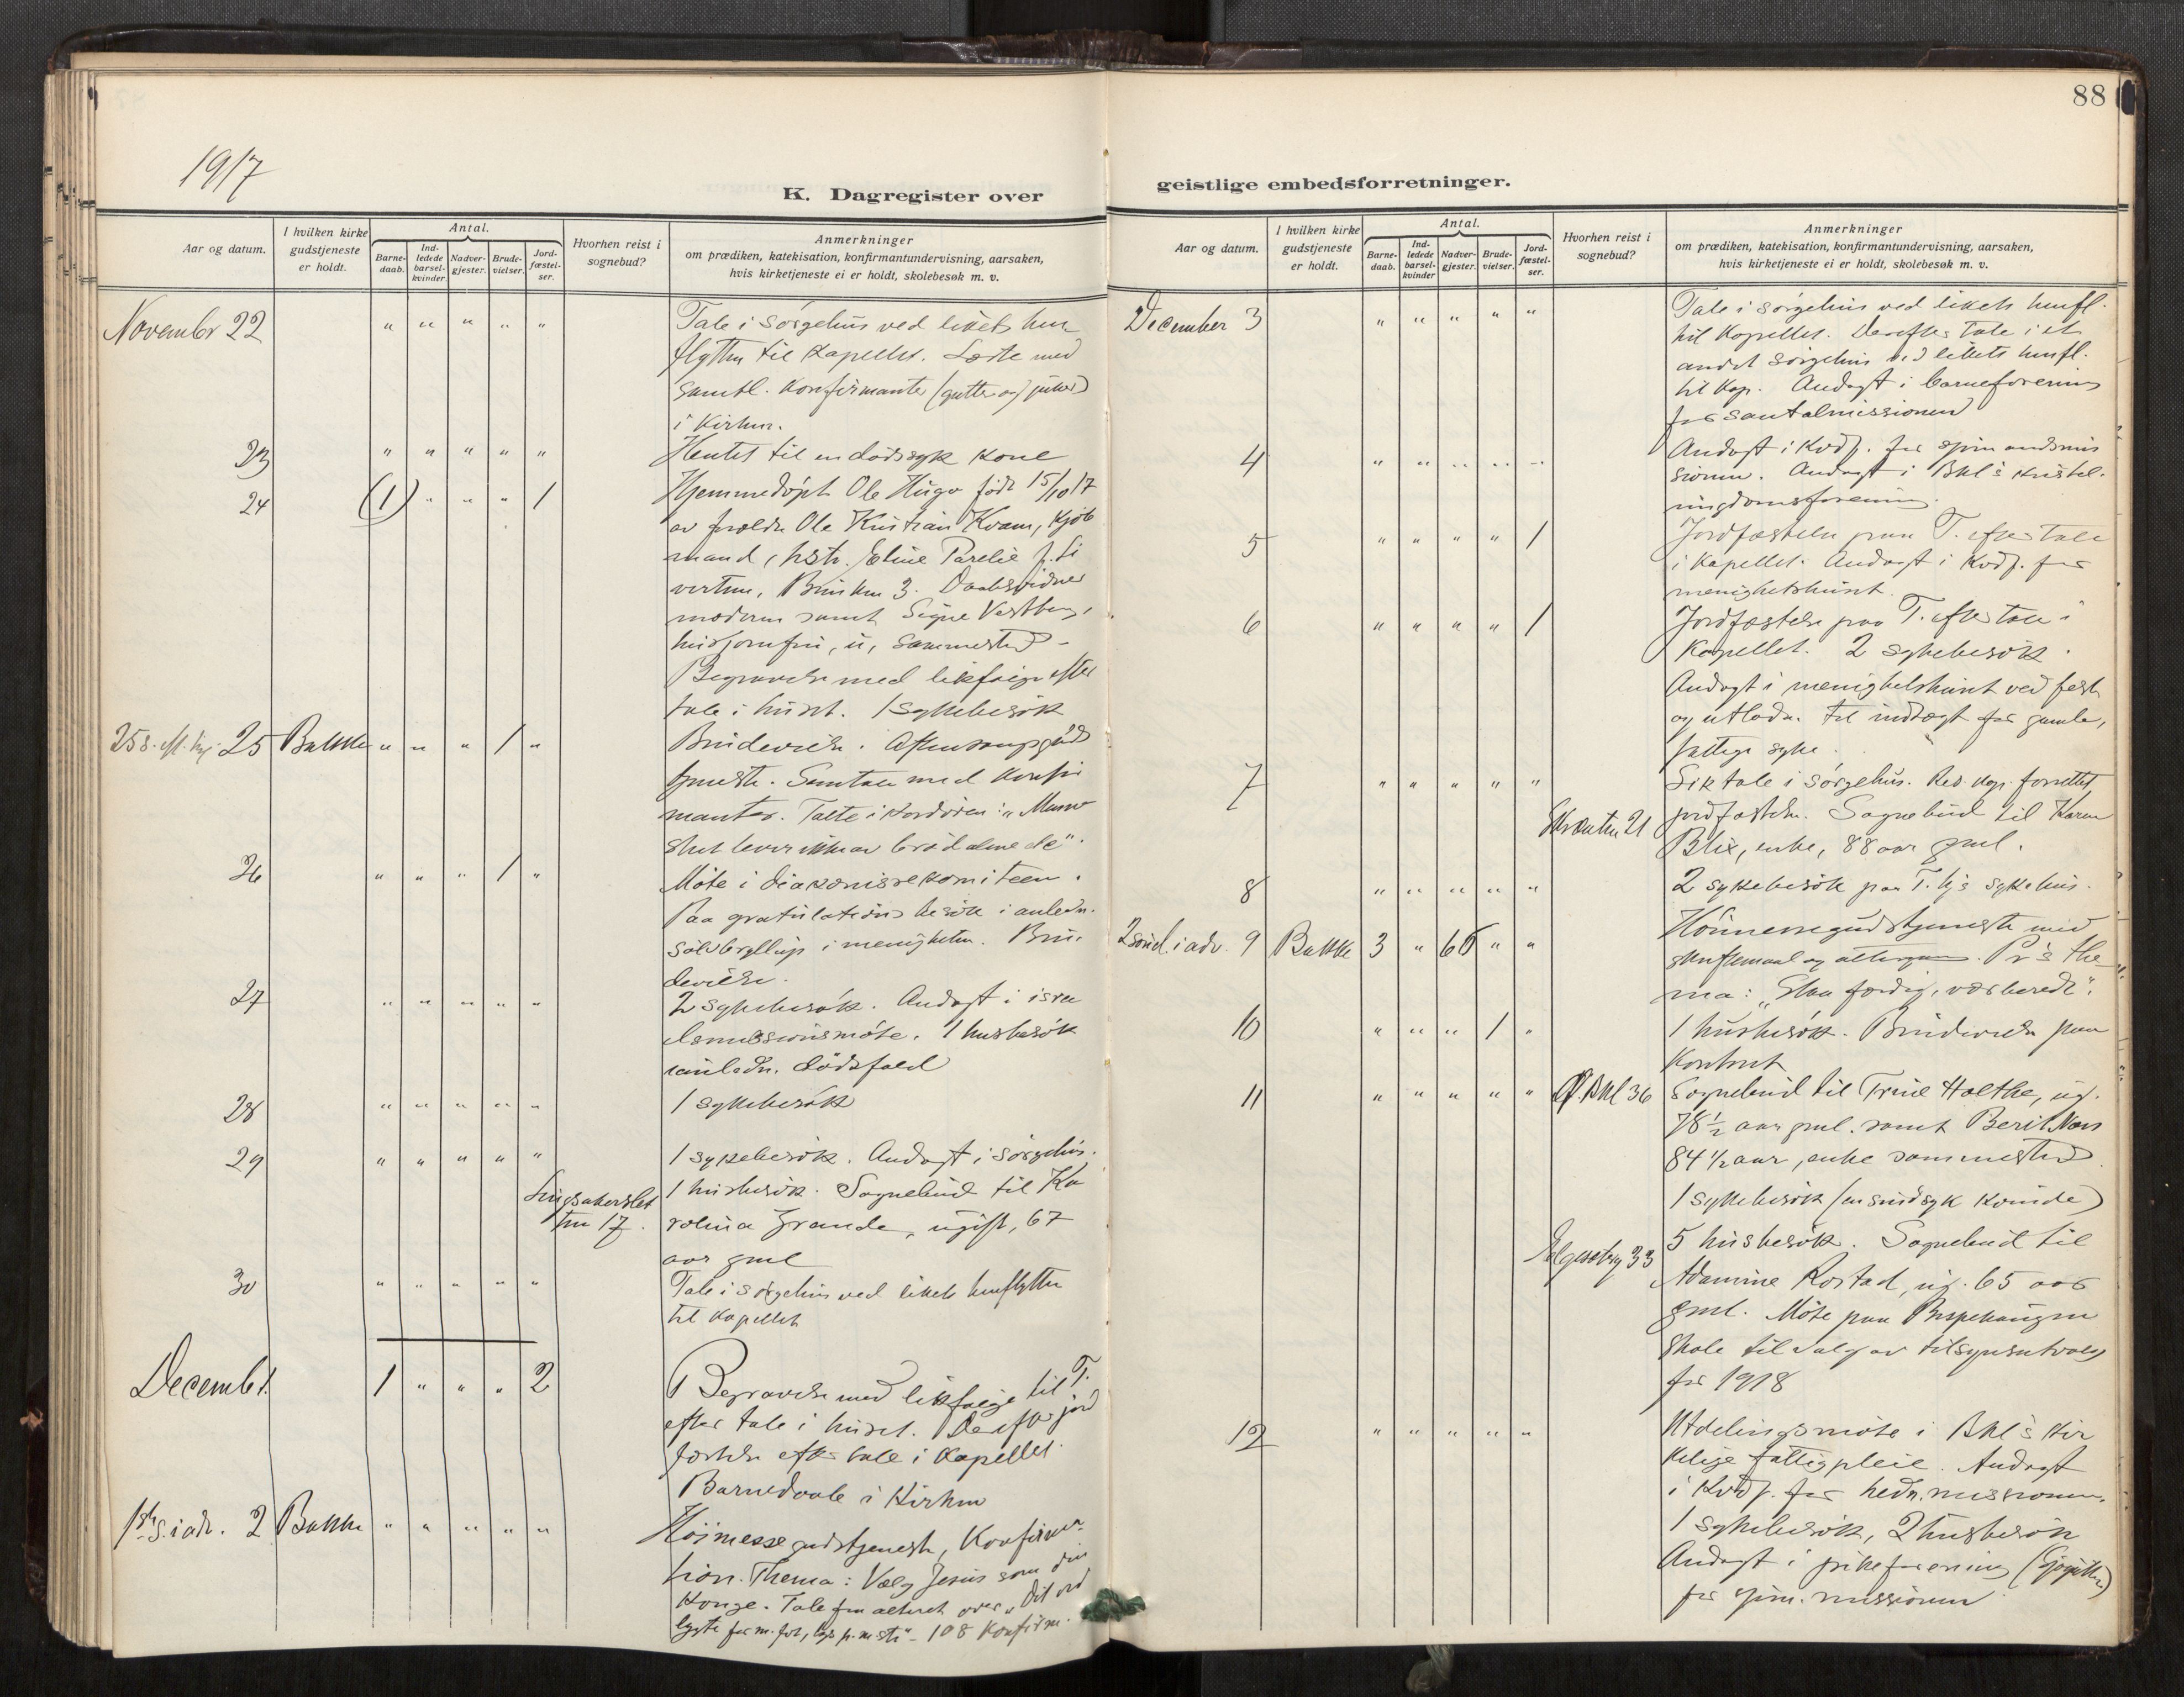 88
1917
K. Dagregister over
geistlige embedsforretninger.
Aar og datum.
I hvilken kirke gudstjeneste er holdt.
Antal.
Barne-daab.
Ind-ledede barsel-kvinder.
Nadver-gjester.
Brude-vielser.
Jord-fæstel-ser.
Hvorhen reist i sognebud?
Anmerkninger
om prædiken, katekisation, konfirmantundervisning, aarsaken,
hvis kirketjeneste ei er holdt, skolebesøk m. v.
November 22 " " " " " Tale i sørgehus ved likets hen
flytten til Kapellet. Læste med
samtl. Konfirmanter (gutter og piker)
i Kirken.
23 " " " " " Hentet til en dødssyk kone
24 (1) " " " 1 Hjemmedøpt Ole Hugo født 15/10 17
av forældre Ole Kristian Kvam, Kjøb
mand, hstr. Eline Parelie f. Si
vertsen, 3. Daabsvidner
moderen samt Signe Vestberg,
husjomfru, u, sammested -
Begravelse med likfølge efter
tale i huset. 1 sykebesøk
25 s. ef. 25 Bakke " " " 1 " Brudevielse. Aftensangsguds
tjeneste. Samtale med Konfir
manter. Talte i Kordøren: "Men
sket lever ikke av brød alene etc".
26 " " " 1 " Møte i diakonissekomiteen.
Paa gratulationsbesøk i anledn.
sølvbryllup i menigheten. Bru-
devielse.
27 " " " " " 2 sykebesøk. Andagt i isra
elsmissionsmøte. 1 husbesøk
i anledn. dødsfald
28 " " " " " 1 sykebesøk
29 " " " " " 1 sykebesøk. Andagt i sørgehus.
Singsakerslet
ten 17. 1 husbesøk. Sognebud til Ka
rolina Grande, ugift, 67
aar gml
30 " " " " " Tale i sørgehus ved likets henflytten
til Kapellet
Decemb 1. 1 " " " 2 Begravelse med likfølge til T.
efter tale i huset. Derefter jord
fæstelse efter tale i Kapellet.
Barnedaab i Kirken
1ste s. i adv. 2 Bakke " " " " " Høimessegudstjeneste, Konfirma-
tion. Thema: Vælg Jesus som din
Konge. Tale fra alteret over "Dit ord
lygte for m. fot, lys p. m sti" - 108 Konfirm.
Aar og datum.
I hvilken kirke gudstjeneste er holdt.
Antal.
Barne-daab.
Ind-ledede barsel-kvinder
Nadver-gjester.
Brude-vielser.
Jord-fæstel-ser.
Hvorhen reist i sognebud?
Anmerkninger
om prædiken, katekisation, konfirmantundervisning, aarsaken,
hvis kirketjeneste ei er holdt, skolebesøk m. v.
December 3 " " " " " Tale i sørgehus ved likets henfl.
til Kapellet. Derefter tale i et
andet sørgehus ved likets henfl.
til Kap. Andagt i barneforening
for santalmissionen
4 " " " " " Andagt i Kvdf. for sjømandsmis
sionen. Andagt i Bkl's kristel.
ungdomsforening.
5 " " " " 1 Jordfæstelse paa T. efter tale
i Kapellet. Andagt i Kvdf. for
menighetshuset.
6 " " " " 1 Jordfæstelse paa T. efter tale i
Kapellet. 2 sykebesøk.
Andagt i menighetshuset ved fest
og utlodn. til indtægt for gamle,
fattige syke.
7 " " " " " Liktale i sørgehus. Res. Kap. forrettet
jordfæstelsen. Sognebud til Karen
Blix, enke, 88 aar gml.
8 " " " " " 2 sykebesøk paa T. hjs sykehus.
2 sønd. i adv. 9 Bakke 3 " 66 " " Høimessegudstjeneste med
skriftemaal og altergang. Pr's the
ma: "Staa færdig, vær beredt".
10 " " " 1 " 1 husbesøk. Brudevielse paa
Kontoret
11 " " " " " Ø. Bkl 36 Sognebud til Trine Holthe, ug.
78 1/2 aar gml. samt Berit Næss
84 1/2 aar, enke sammested.
1 sykebesøk (en sindssyk kvinde)
Elgeseterg 33 5 husbesøk. Sognebud til
Adamine Rostad, ug. 65 aar
gml. Møte paa Bispehaugen
skole til valg av tilsynsutvalg
for 1918
12 " " " " " Utdelingsmøte i Bkl's kir
kelige fattigpleie. Andagt
i Kvdf. for hedn. missionen.
1 sykebesøk, 2 husbesøk
Andagt i pikeforening
for sjøm. missionen